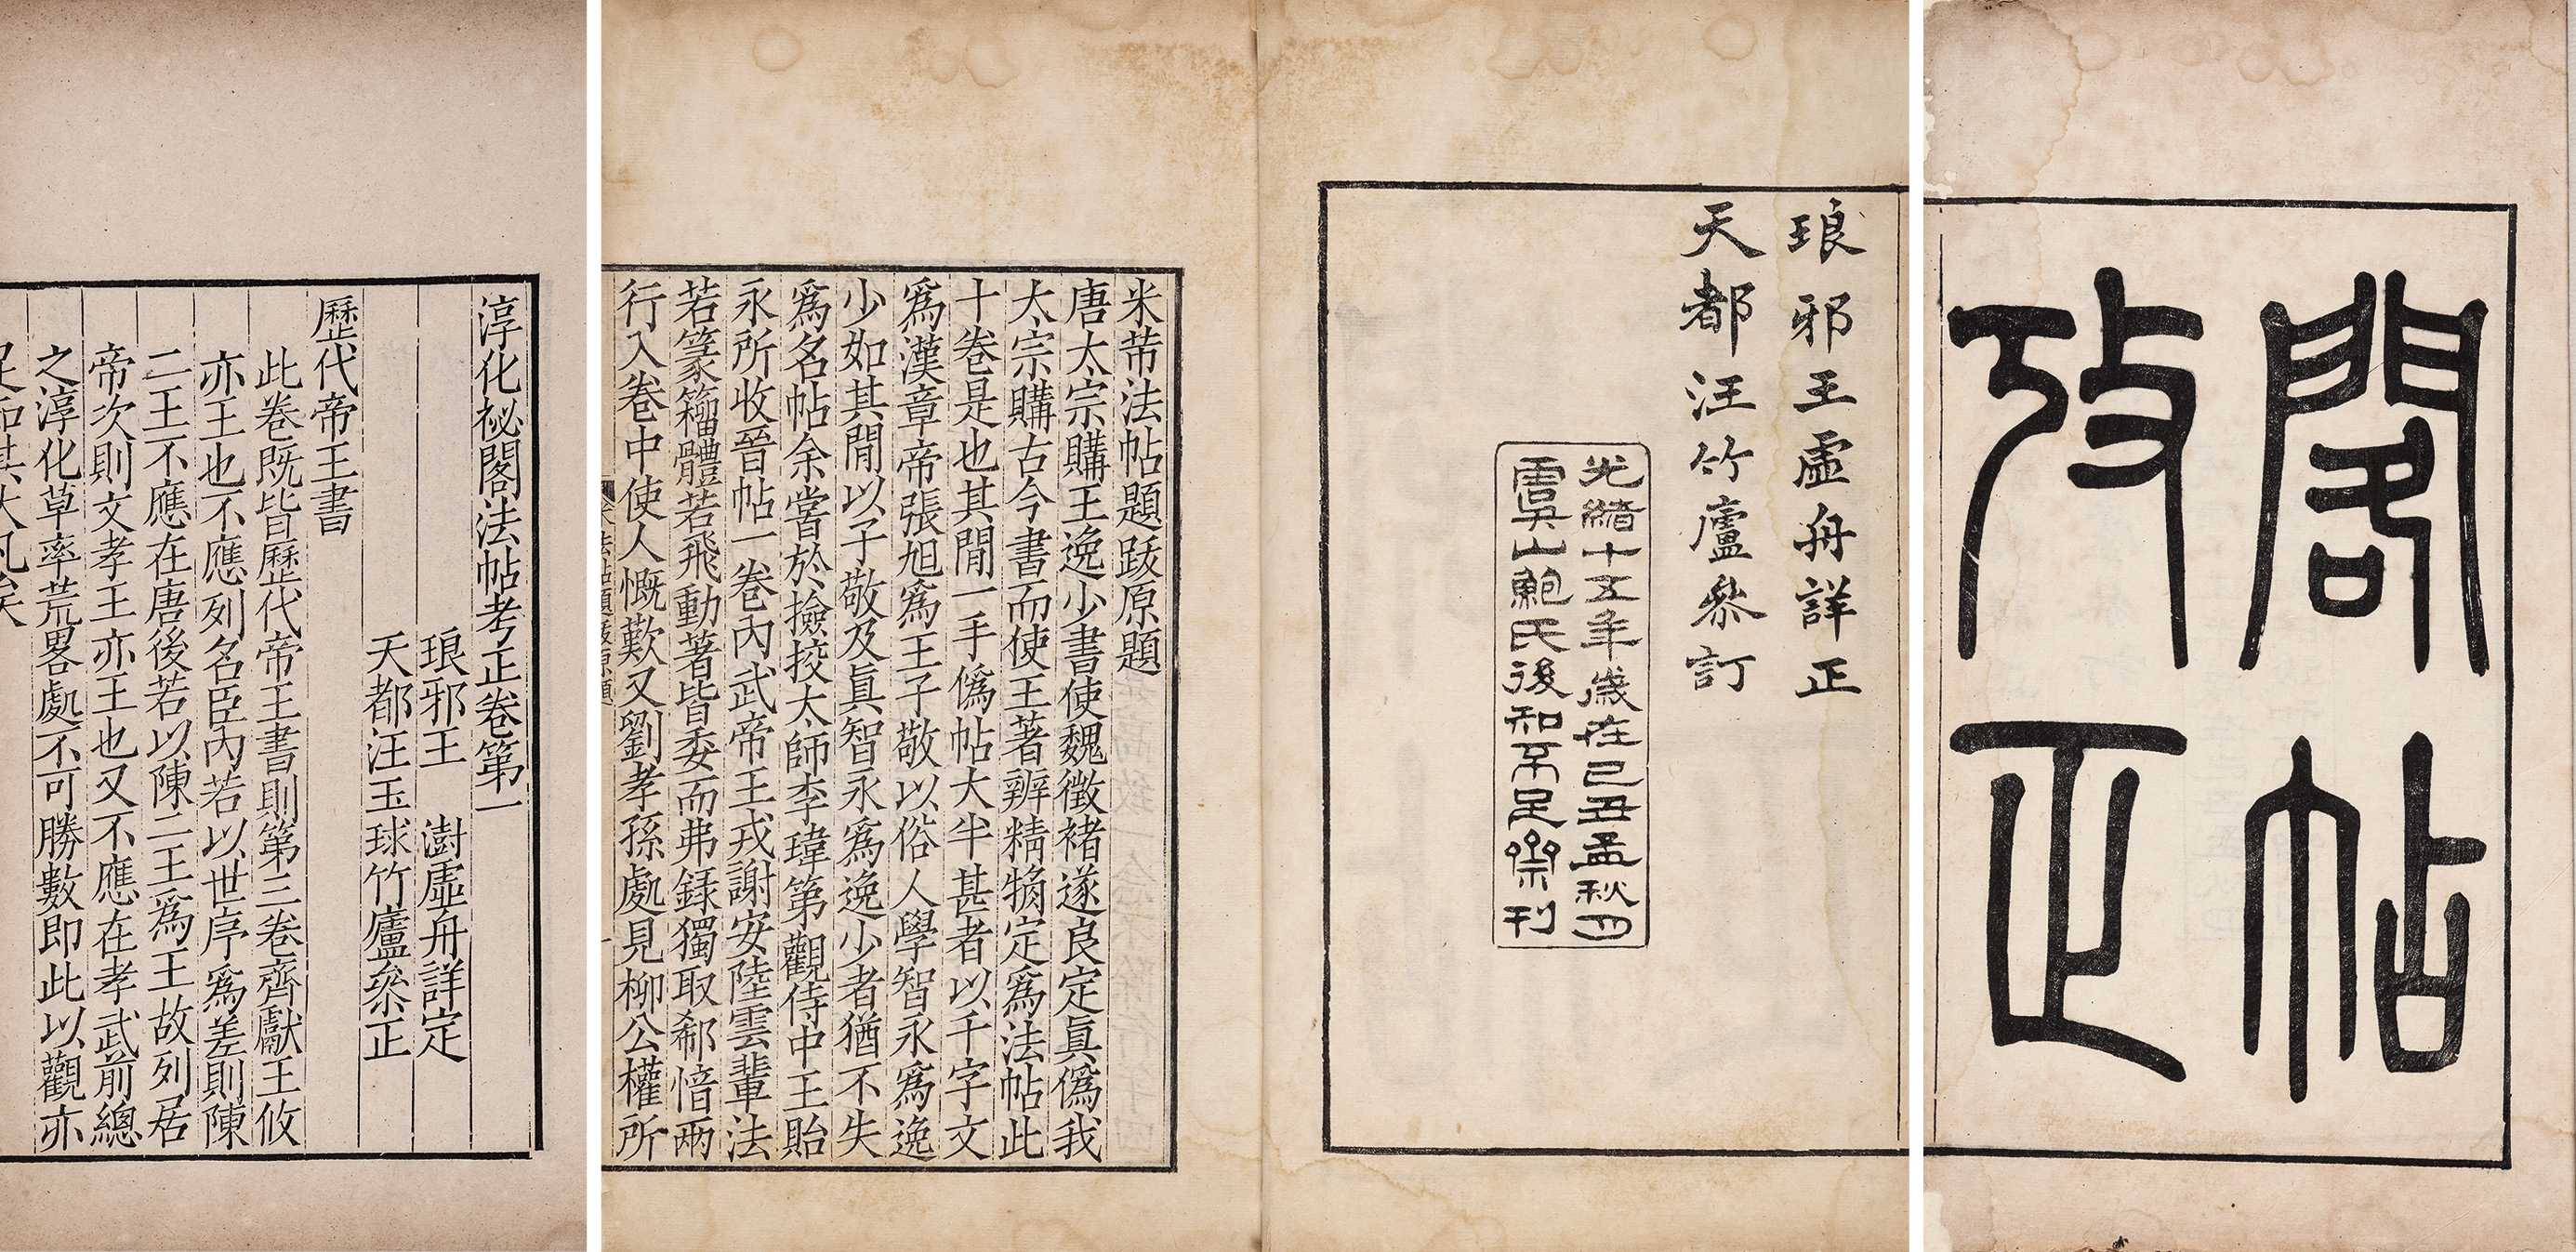 閣帖
攷正
琅邪王虛舟詳正
天都汪竹廬叅訂
光緒十五年歲在己丑孟秋四
虞山鮑氏後知不足齋刊
米芾法帖題跋原題
唐太宗購王逸少書使魏徵褚遂良定眞僞我
太宗購古今書而使王著辨精觕定爲法帖此
十卷是也其閒一手僞帖太半甚者以千字文
爲漢章帝張旭爲王子敬以俗人學智永爲逸
少如其閒以子敬及眞智永爲逸少者猶不失
爲名帖余嘗於撿挍太師李瑋第觀侍中王貽
永所收晉帖一卷內武帝王戎謝安陸雲輩法
若篆籀體若飛動著皆委而弗錄獨取郗愔兩
行入卷中使人慨歎又劉孝孫處見柳公權所
法帖題跋原題
一
淳化祕閣法帖考正卷第一
琅邪王　澍虛舟詳定
天都汪玉球竹廬叅正
歷代帝王書
此卷旣皆歷代帝王書則第三卷齊獻王攸
亦王也不應列名臣內若以世序爲差則陳
二王不應在唐後若以陳二王爲王故列居
帝次則文孝王亦王也又不應在孝武前總
之淳化草率荒畧處不可勝數即此以觀亦
足知其大凡矣